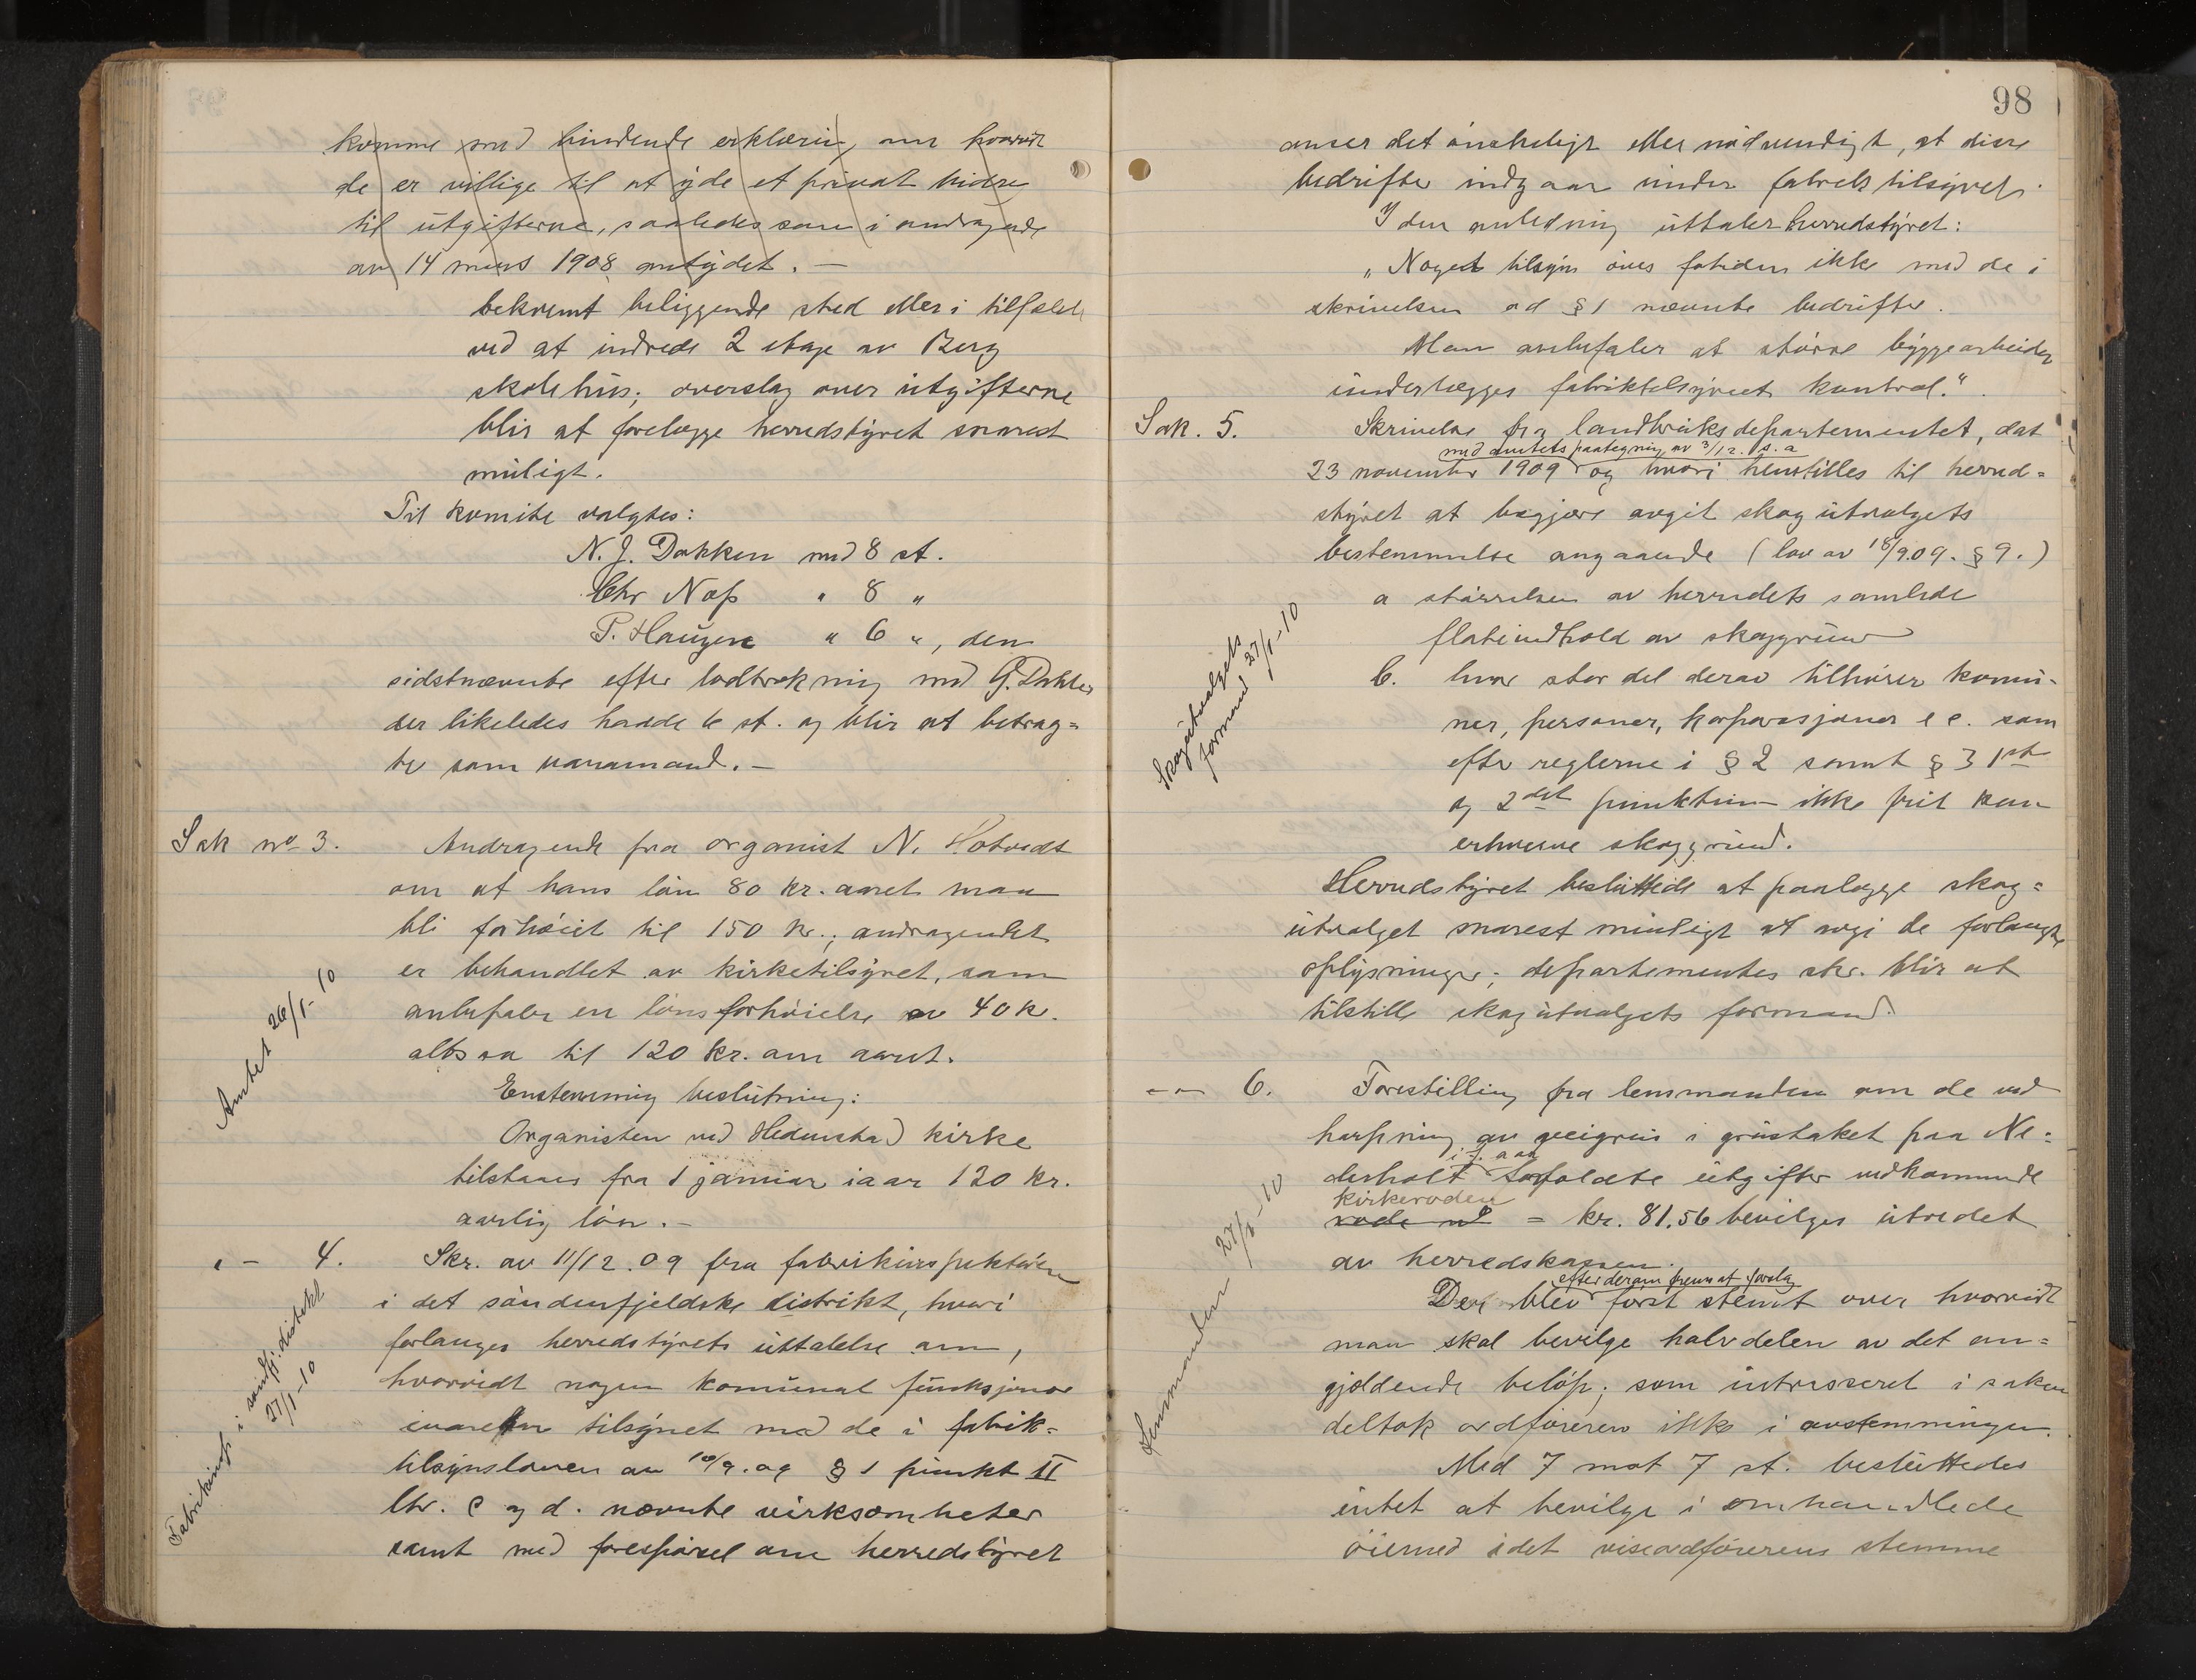 komme med bindende erklæring om hvorvidt
de er villige til at yde et privat bidrag
til utgifterne, saaledes som i andragende
av 14 mars 1908 antydet. —
bekvemt beliggende sted eller i tilfælde
ved at indrede 2 etage av Berg
skolehus; overslag over utgifterne
blir at forelægge herredstyret snarest
muligt.
Til komite valgtes:
N. J. Dokken med 8 st.
Chr Næss " 8 "
P. Haugen " 6 ", den
sidstnævnte efter lodtrækning med G. Dahler
der likeledes hadde 6 st. og blir at betrag=
te som varamand. —
Sak no 3. Andragende fra organist N. Hotvedt
om at hans løn 80 kr. aaret maa
bli forhøiet til 150 kr.; andragendet
er behandlet av kirketilsynet, som
anbefaler en lønsforhøielse av 40 kr.
altsaa til 120 kr. om aaret.
Amtet 26/1-10
Enstemmig beslutning:
Organisten ved Hedenstad kirke
tilstaaes fra 1 januar iaar 120 kr.
aarlig løn. —
" — 4. Skr. av 11/12.09 fra fabrikinspektøren
i det søndenfjeldske distrikt, hvori
forlanges herredstyrets uttalelse om,
hvorvidt nogen komunal funksjonær
ivaretar tilsynet med de i fabrik=
tilsynsloven av 10/9.09 § 1 punkt II
ltr. c og d. nævnte virksomheter
samt med forespørsel om herredstyret
Fabrikinsp. i søndfj. distrikt
27/1-10
98
anser det ønskeligt eller nødvendigt, at disse
bedrifter indgaar under fabrektilsynet.
I den anledning uttaler herredstyret:
„Noget tilsyn øves fotiden ikke med de i
skrivelsen ad § 1 nævnte bedrifter.
Man anbefaler at større byggearbeider
underlægges fabriktilsynets kontrol."
Sak. 5. Skrivelse fra landbruksdepartementet, dat
med amtets paategning av 3/12. s. a
23 november 1909 og hvori henstilles til herred=
styret at begjære avgit skogutvalgets
bestemmelse angaaende (lov av 18/9.09. § 9.)
a størrelsen av herredets samlede
flateindhold av skoggrund
b. hvor stor del derav tilhører komu-
ner, personer, korporasjoner e c. som
efter reglerne i § 2 samt § 3 1ste
og 2det punktum ikke frit kan
erhverve skoggrund.
Skogutvalgets
formand 27/1-10
Herredstyret besluttede at paalægge skog=
utvalget snarest muligt at avgi de forlangte
oplysninger; departementes skr. blir at
tilstille skogutvalgets formand.
" — 6. Forestilling fra lensmanden om de ved
harpning av veigrus i grustaket paa Ne=
i f. aar
derholt forfaldte utgifter vedkommende
kirkeroden
rode no = kr. 81.56 bevilges utredet
av herredskassen.
efter derom fremsat forslag
Der blev først stemt over hvorvidt
man skal bevilge halvdelen av det om=
gjældende beløp; som intresseret i saken
deltok ordføreren ikke i avstemningen.
Med 7 mot 7 st. besluttedes
intet at bevilge i omhandlede
øiemed idet viseordførerens stemme
Lensmanden 27/1-10